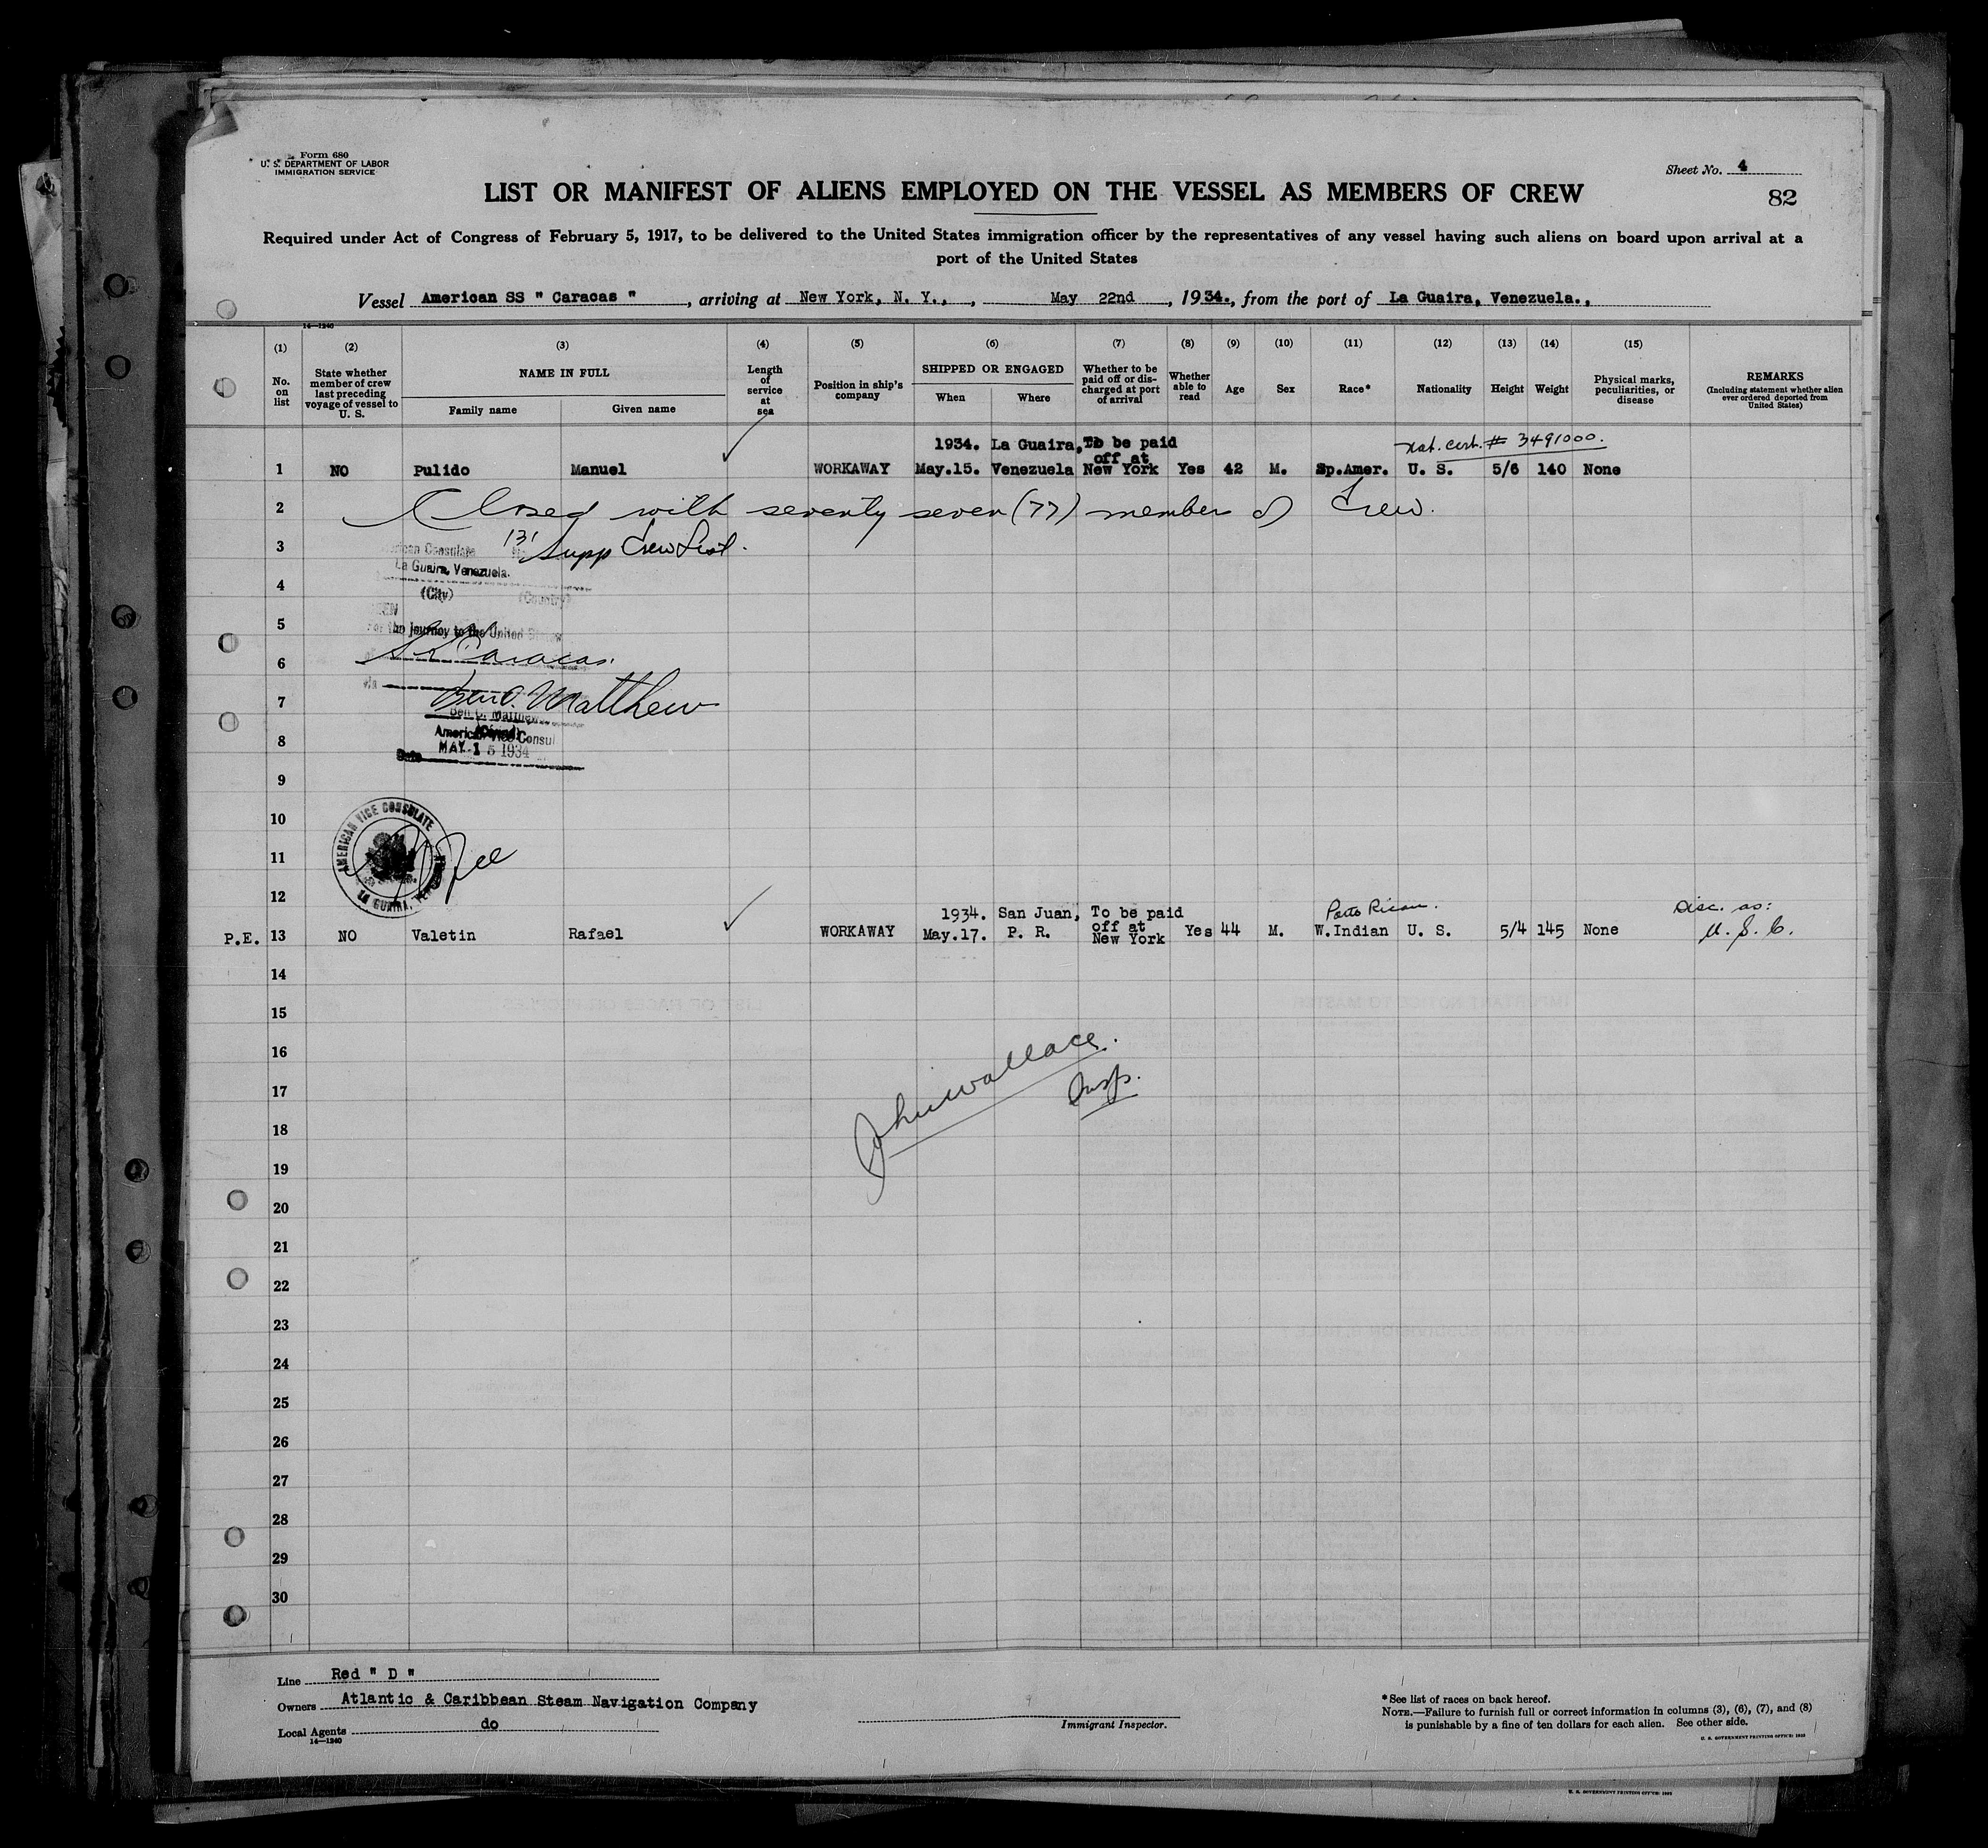 Form 680
U. S. DEPARTMENT OF LABOR
IMMIGRATION SERVICE
Sheet No. 4
82
LIST OR MANIFEST OF ALIENS EMPLOYED ON THE VESSEL AS MEMBERS OF CREW
Required under Act of Congress of February 5, 1917, to be delivered to the United States immigration officer by the representatives of any vessel having such aliens on board upon arrival at a
port of the United States
Vessel American SS " Caracas " , arriving at New York, N. Y., , May 22nd , 1934., from the port of La Guaira, Venezuela.,
14—1240
(1) (2) (3) (4) (5) (6) (7) (8) (9) (10) (11) (12) (13) (14) (15)
No. on list
State whether member of crew last preceding voyage of vessel to U. S.
NAME IN FULL
Family name Given name
Length of service at sea
Position in ship's company
SHIPPED OR ENGAGED
When Where
Whether to be paid off or discharged at port of arrival
Whether able to read
Age
Sex
Race*
Nationality
Height
Weight
Physical marks, peculiarities, or disease
REMARKS
(Including statement whether alien ever ordered deported from United States)
1934. La Guaira, To be paid Nat. Cert. # 3491000.
off at
1 NO Pulido Manuel WORKAWAY May.15. Venezuela New York Yes 42 M. Sp.Amer. U. S. 5/6 140 None
2 Closed with seventy seven (77) members of Crew.
3 American Consulate Supp Crew List.
La Guaira, Venezuela.
4 (City) (Country)
SEEN
5 For the journey to the United States
6 SS Caracas.
via
7 Ben C. Matthews
Ben C. Matthews
8 American Vice Consul
Date MAY 15 1934
9
10
AMERICAN VICE CONSULATE
LA GUAIRA, VENEZUELA
11
12
1934. San Juan, To be paid Porto Rican. Disc. as:
off at
P.E. 13 NO Valetin Rafael WORKAWAY May.17. P. R. New York Yes 44 M. W.Indian U. S. 5/4 145 None U. S. C.
14
15
16
John Wallace.
17 Insp.
18
19
20
21
22
23
24
25
26
27
28
29
30
Line Red " D "
Owners Atlantic & Caribbean Steam Navigation Company
Local Agents do
14—1240
Immigrant Inspector.
*See list of races on back hereof.
NOTE.—Failure to furnish full or correct information in columns (3), (6), (7), and (8)
is punishable by a fine of ten dollars for each alien. See other side.
U. S. GOVERNMENT PRINTING OFFICE: 1933